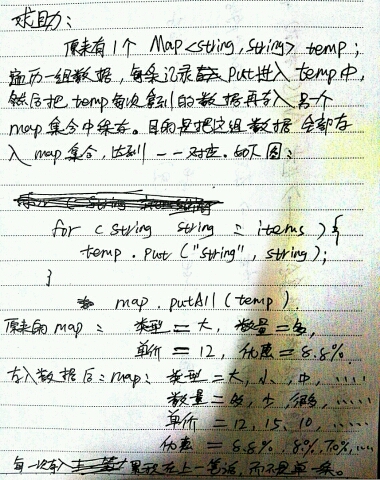 求助:
原来有1个 Map<string,string> temp;
遍历一组数据,每条记录put进入temp中,
然后把,temp每次复到的数据再存入另个
map集合中保存。目的是把这组数据全部存
入map集合,达到一一对应。如下图:
for (string string : items) {
temp.put("string", string);
}
map.putAll(temp)
原来的map: 类型=大, 数量=多,
单价=12, 优惠=8.8%
存入数据后:map: 类型=大,小,中,......
数量=多,少,很多,......
单价=12,15,10,......
优惠=8.8%,8%,7.0%,...
每一次存入累积在上一笔后,而不是单一条。